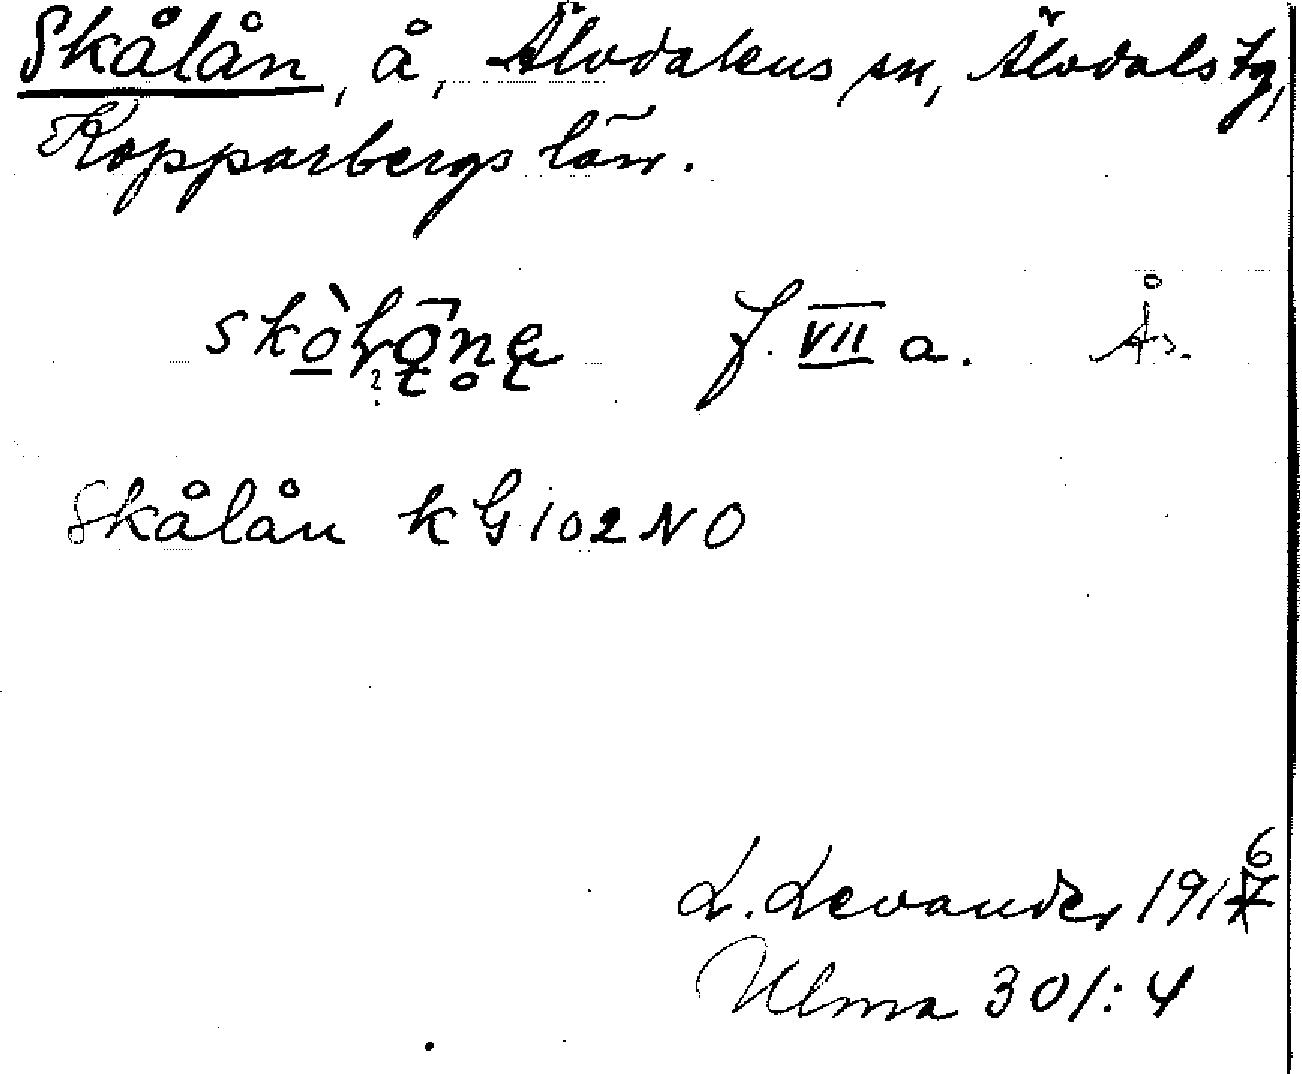 Skålån, å, Älvdalens sn, Älvdals tg,
Kopparbergs län.
f. VII a. Ås.
Skålån k G 102 NO
L. Levander 1916
Ulma 301:4